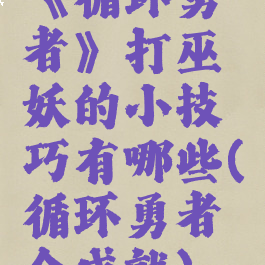 《循环勇
者》打巫
妖的小技
巧有哪些(
循环勇者
全成就)